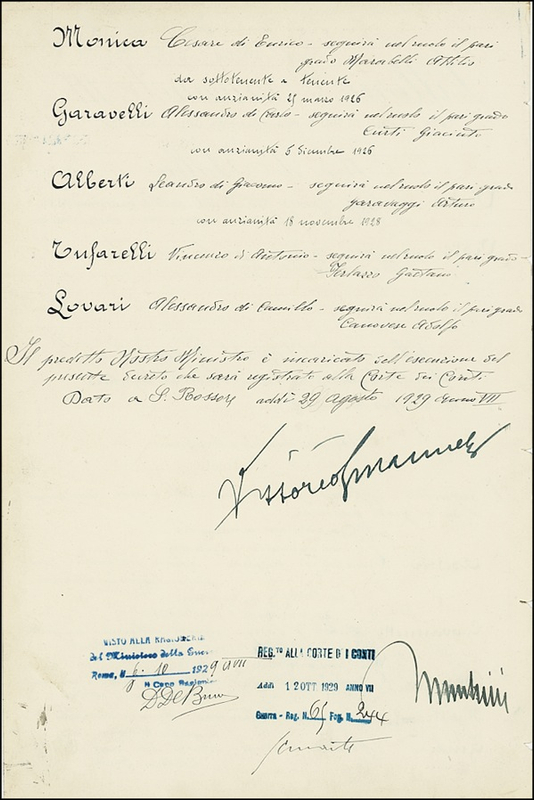 Monica Cesare di Enrico - seguirà nel ruolo il pari
grado Marabelli Attilio
da sottotenente a tenente
con anzianità 25 marzo 1926
Garavelli Alessandro di Carlo - seguirà nel ruolo il pari grado
Curti Giacinto
con anzianità 5 dicembre 1926
Alberti Leandro di Giacomo - seguirà nel ruolo il pari grado
Garavaggi Arturo
con anzianità 18 novembre 1928
Tufarelli Vincenzo di Antonio - seguirà nel ruolo il pari grado -
Gaetano
Lovari Alessandro di Camillo - seguirà nel ruolo il pari grado
Canovese Adolfo
Il predetto Nostro Ministro è incaricato dell'esecuzione del
presente decreto che sarà registrato alla Corte dei Conti.
Dato a S. Rossore addì 29 agosto 1929 Anno VII
Vittorio Emanuele
VISTO ALLA RAGIONERIA
del Ministero della Guerra
Roma, li 10 1929 a VII
Il Capo Ragioniere
REG.TO ALLA CORTE DEI CONTI
Addì 12 OTT 1929 ANNO VII
Guerra - Reg. N. 65 Fog. N. 244
Mussolini